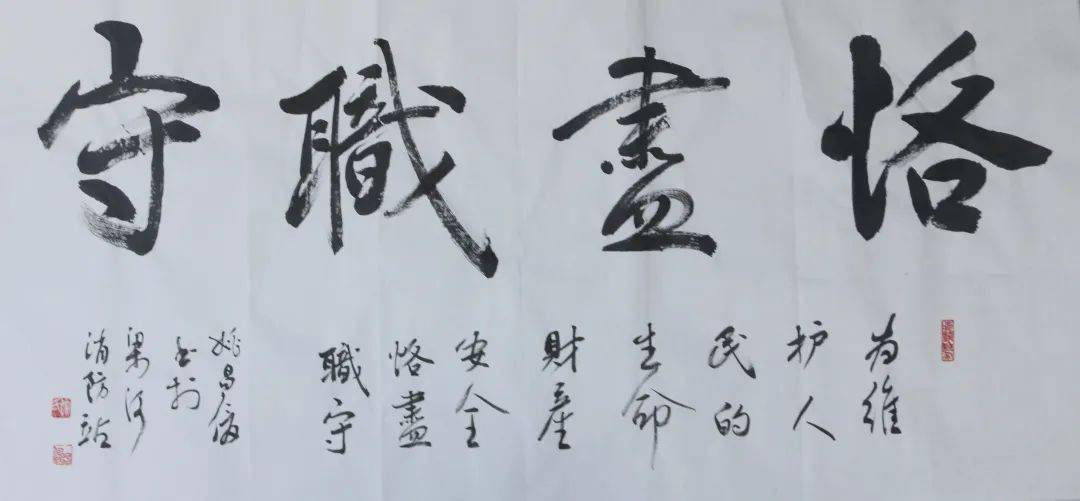 恪盡職守
为維
护人
民的
生命
財產
安全
恪盡
職守
姚昌
书於
梁河
消防站